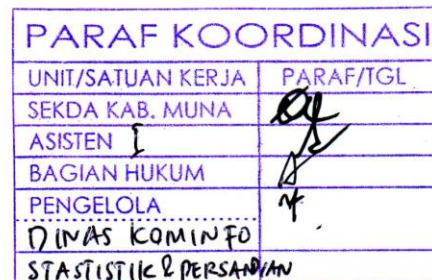 PARAF KOORDINASI
UNIT/SATUAN KERJA PARAF/TGL
SEKDA KAB. MUNA
ASISTEN I
BAGIAN HUKUM
PENGELOLA
DINAS KOMINFO
STASTISTIIK & PERSANDIAN